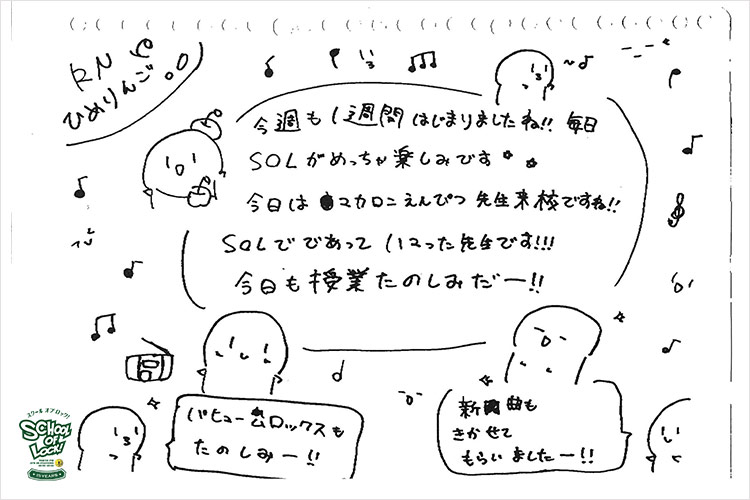 RN
ひめりんご
今週も1週間はじまりましたね!! 毎日
SOLがめっちゃ楽しみです
今日はマカロニえんぴつ先生来校ですね!!
SOLでであって ハマった先生です!!!
今日も授業たのしみだー!!
バヒュームロックスも
たのしみー!!
新曲も
きかせて
もらいましたー!!
スクール オブ ロック!
SCHOOL
OF
LOCK!